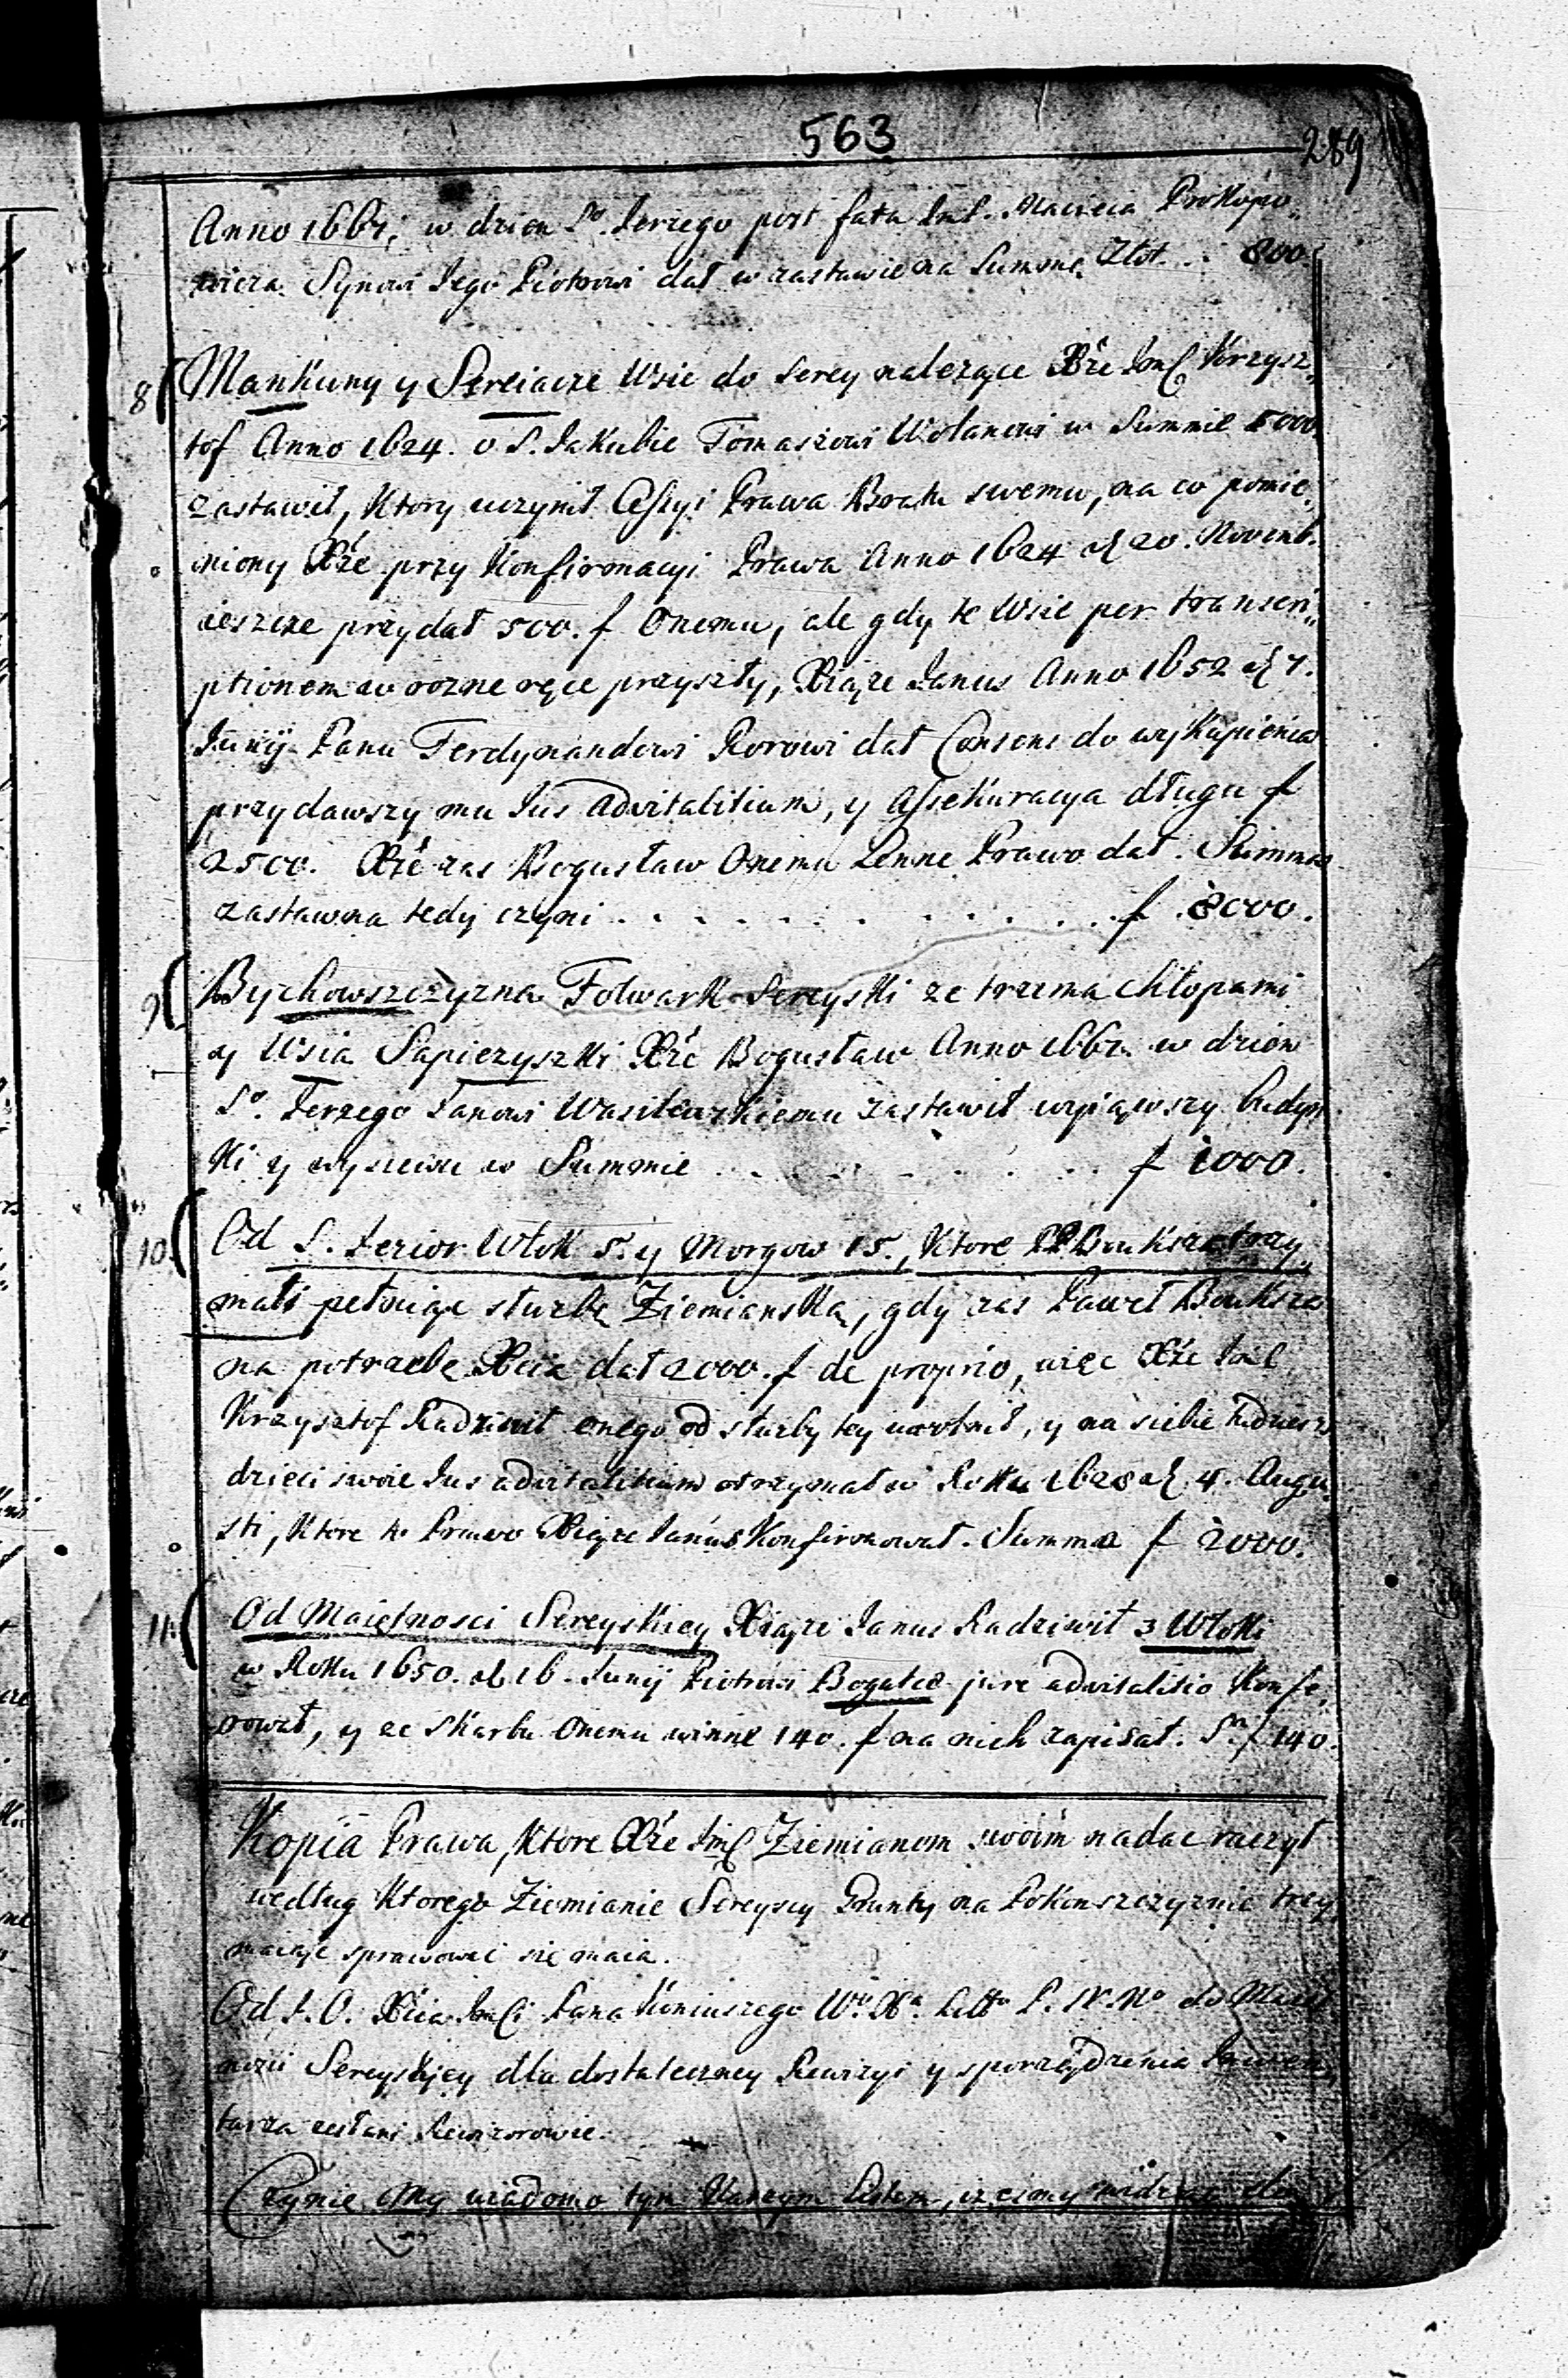 563
289
Anno 1661; w dzien So. Jerzego post fata Jmć. Macieia Prokopo„
wicza Synowi Jego Piotrowi dał w zastawie na Summę Złot. .. 800.
8 Mankuny y Sereiacze Wsie do Serey należące Xże Jmć Krzysz„
tof Anno 1624. o S. Jakubie Tomaszowi Wolanowi w Summie 5000
zastawił, Ktory uczynił Cessyi Prawa Bratu swemu, na co pomie„
niony Xże przy Konfirmacyi Prawa Anno 1624 d 20. Novemb.
ieszcze przydał 500. f Onemu, ale gdy te Wsie per transcri„
ptionem w rozne ręce przyszły, Xiąże Janus Anno 1652 d 7.
Junij Panu Ferdynandowi Rorowi dał Consens do wykupienia
przydawszy mu Jus advitalitium, y Assekuracya długu f
2500. Xże zas Bogusław Onemu Lenne Prawo dał. Summa
zastawna tedy czyni . . . . . . . . . . f 8000.
9 Bychowszczyzna Folwark Sereyski ze trzema chłopami
y Wsia Sapiezyszki Xże Bogusław Anno 1661. w dzien
So. Jerzego Janowi Wasilewskiemu zastawił wyiąwszy budyn
ki y wysiewu w Summie . . . . . . . f 1000.
10. Od S. Jezior Włok 5. y Morgow 15., Ktore PP Bouksze trzy„
mali pełniąc służbę Ziemianską, gdy zas Paweł Bouksza
na potrzebę Xcia dał 2000. f de proprio, więc Xże Jmć
Krzysztof Radziwił onego od służby tey uwolnił, y na siebie tudziesz
dzieci swoie Jus advitalitium otrzymał w Roku 1628 d 4. Augu„
sti, Ktore to Prawo Xiąże Janus Konfirmował. Summa f 2000.
11. Od Maiętnosci Sereyskiey Xiąże Janus Radziwił 3 Włoki
w Roku 1650. d 16. Junij Piotrowi Bogatce jure advitalitio Konfe„
rował, y ze Skarbu Onemu winne 140. f na nich zapisał. Sa. f 140.
Kopia Prawa, Ktore Xże Jmć Ziemianom swoim nadac raczył
według Ktorego Ziemianie Sereyscy Grunty na Pokonszczyznie trzy„
maiąc sprawowac się maią.
Od J. O. Xcia Jmći Pana Koniuszego do Maięt
nosci Sereyskiey dla dostateczney Rewizyi y sporządzenia Inwen„
tarza zesłani Rewizorowie.
Czynię my wiadomo tym Naszym Listem, iz